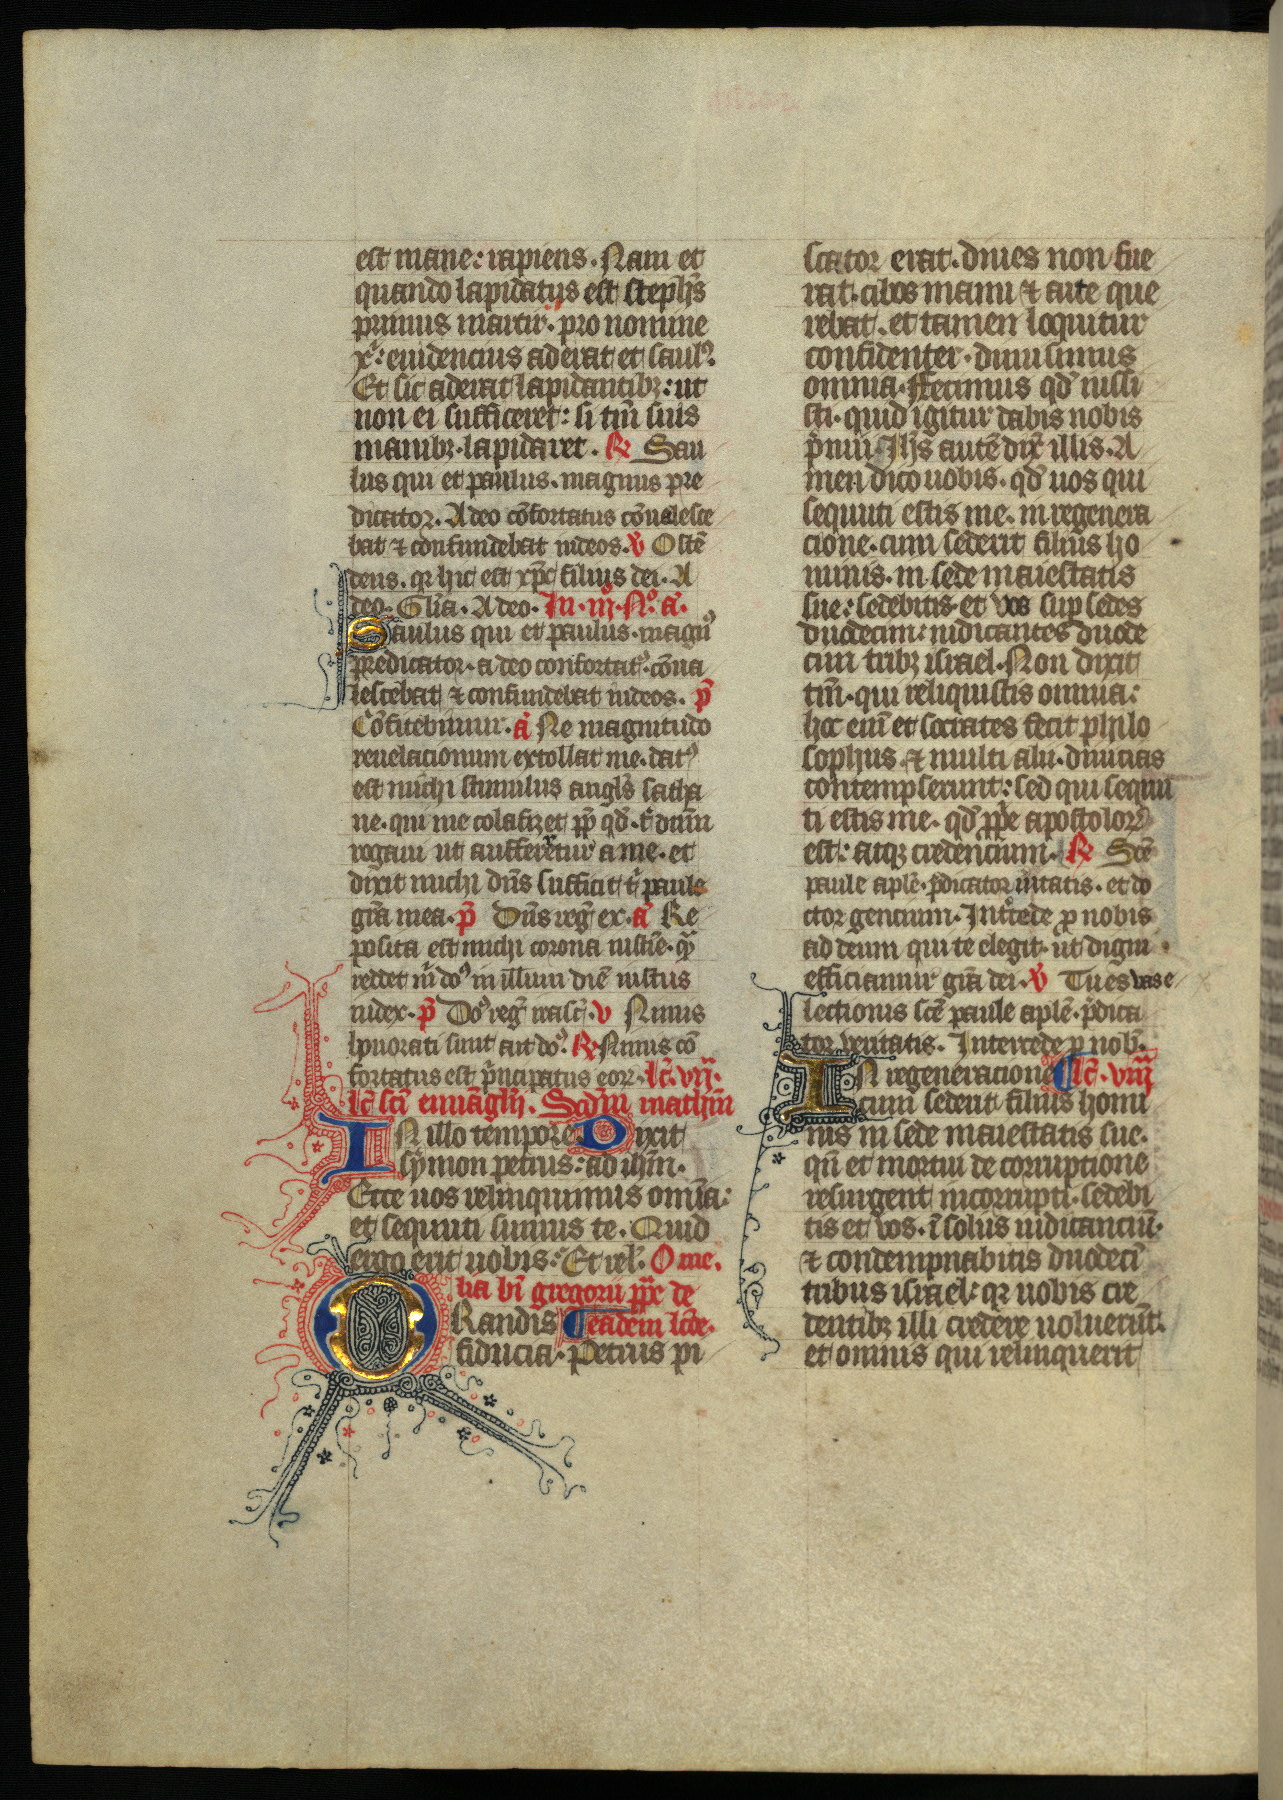 est mane: rapiens. Nam et
quando lapidatus est steph̄s
primus martir. pro nomine
xp̄i: euidencius aderat et saulꝰ.
Et sic aderat lapidantibꝫ: ut
non ei sufficeret: si tm̄ suis
manibꝫ lapidaret. ℟ Sau
lus qui et paulus. magnus pre
dicator. Adeo cōfortatus cōualesce
bat ⁊ confundebat iudeos. ℣ Ostē
dens. qꝛ hic est xp̄c filius dei. A
deo. Gl̄ia. Adeo. In. iijº. Nº. a̅.
Saulus qui et paulus. magnꝰ
predicator. adeo confortatꝰ. cōua
lescebat ⁊ confundebat iudeos. p̄
Cōfitebimur. a̅ Ne magnitudo
reuelacionum extollat me. datꝰ
est michi stimulus angl̄s satha
ne. qui me colafizet ꝓp̄ qd̄. t̄ dm̄
rogaui ut aufferretur a me. et
dixit michi dn̄s sufficit t̄ paule
gr̄a mea. p̄ Dn̄s reḡ ex. a̅ Re
posita est michi corona iusticie. quā
reddet m̄ doꝰ in illum diē iustus
iudex. p̄ Doꝰ reḡ irasc̄. v Nimis
honorati sunt ami doꝰ. ℟ Nimis cō
fortatus est p̄ncipatus eoꝝ. lc̄. vij.
lc̄ sc̄i ewāgl̄ii. Scd̄m mathm̄
IN illo tempore Dixit
symon petrus: ad ih̄m.
Ecce nos relinquimus omīa:
et sequuti sumus te. Quid
ergo erit nobis: Et rel̄. Ome.
lia bt̄i gregorii pp̄e de
GRandis eadem lc̄e.
fiducia. Petrus pi
scator erat. diues non fue
rat. cibos manu ⁊ arte que
rebat. et tamen loquitur
confidenter. dimisimus
omnia. Fecimus qd̄ iussi
sti. quid igitur dabis nobis
p̄mii. Ih̄s autē dix̄ illis. A
men dico uobis. qd̄ uos qui
sequuti estis me. in regenera
cione. cum sederit filius ho
minis. in sede maiestatis
sue: sedebitis et vos sup̄ sedes
duodecim: iudicantes duode
cim tribꝫ israel. Non dixit
tm̄. qui reliquistis omnia:
hoc eni et socrates fecit philo
sophus. ⁊ multi alii. diuicias
contempserunt: sed qui sequu
ti estis me. qd̄ ꝓp̄e apostoloꝝ
est: atqꝫ credencium. ℟ Sc̄e
paule apl̄e. p̄dicator ūitatis. et do
ctor gencium. Int̄cede ꝓ nobis
ad deum qui te elegit. ut digni
efficiamur gr̄a dei. ℣ Tu es vas e
lectionis sc̄e paule apl̄e. p̄dica
tor ueritatis. Intercede ꝓ nob̄.
IN regeneracione lc̄. viij
cum sederit filius homi
nis in sede maiestatis sue.
qn̄ et mortui de corruptione
resurgent incorrupti. sedebi
tis et vos. ī soliis iudicanciū.
⁊ condempnabitis duodecī
tribus israel: qꝛ uobis cre
dentibꝫ illi credere noluerūt.
et omnis qui relinquerit